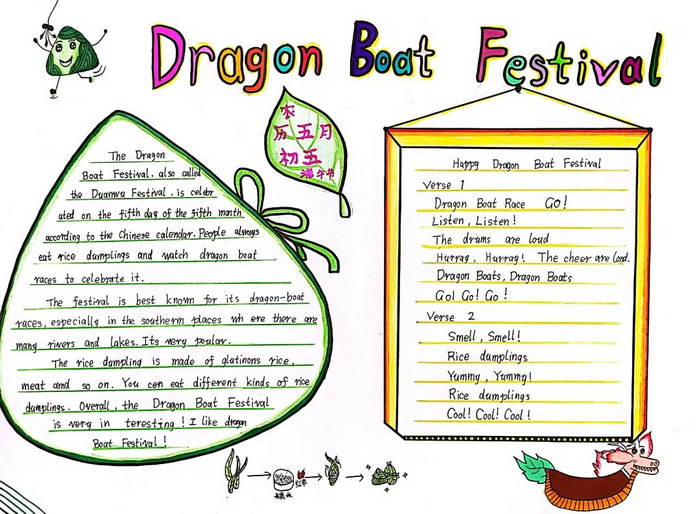 Dragon Boat Festival
农
历五月
初五
端午节
The Dragon
Boat Festival. also called
the Duanwu Festival. is celebr
ated on the fifth day of the fifth month
according to the Chinese calendar. People always
eat rice dumplings and watch dragon boat
races to celebrate it.
The festival is best known for its dragon-boat
races, especially in the southern places wh ere there are
many rivers and lakes. Its very poular.
The rice dumpling is made of glatinons rice,
meat and so on. You can eat different kinds of rice
dumplings. Overall, the Dragon Boat Festival
is very in teresting! I like dragon
Boat Festival!
Happy Dragon Boat Festival
Verse 1
Dragon Boat Race GO!
Listen, Listen!
The drums are loud
Hurray, Hurray! The cheer are loud.
Dragon Boats, Dragon Boats
Go! Go! Go!
Verse 2
Smell, Smell!
Rice dumplings
Yummy, Yummy!
Rice dumplings
Cool! Cool! Cool!